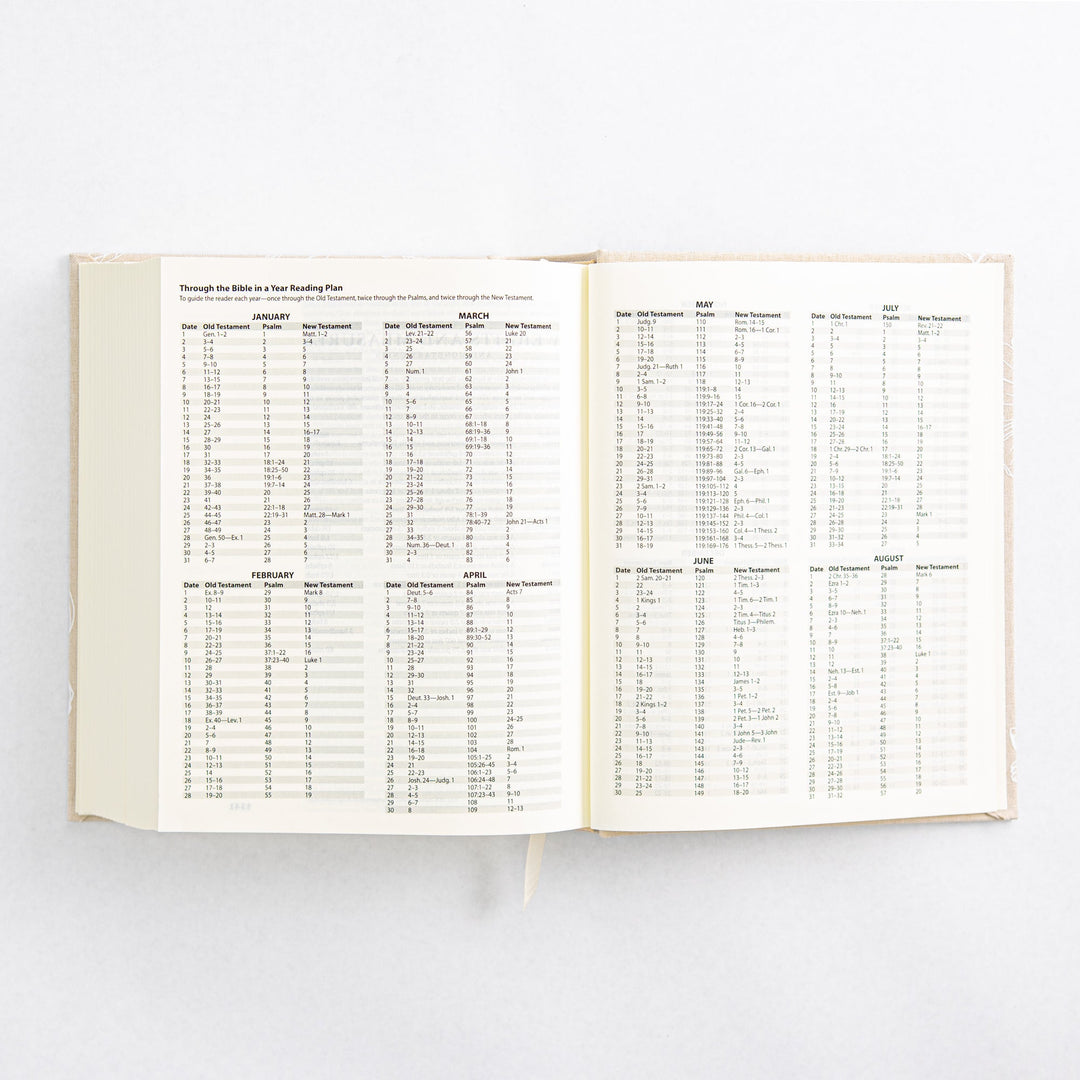 Through the Bible in a Year Reading Plan
To guide the reader each year—once through the Old Testament, twice through the Psalms, and twice through the New Testament.
JANUARY
Date Old Testament Psalm New Testament
1 Gen. 1–2 1 Matt. 1–2
2 3–4 2 3–4
3 5–6 3 5
4 7–8 4 6
5 9–10 5 7
6 11–12 6 8
7 13–15 7 9
8 16–17 8 10
9 18–19 9 11
10 20–21 10 12
11 22–23 11 13
12 24 12 14
13 25–26 13 15
14 27 14 16–17
15 28–29 15 18
16 30 16 19
17 31 17 20
18 32–33 18:1–24 21
19 34–35 18:25–50 22
20 36 19:1–6 23
21 37–38 19:7–14 24
22 39–40 20 25
23 41 21 26
24 42–43 22:1–18 27
25 44–45 22:19–31 Matt. 28—Mark 1
26 46–47 23 2
27 48–49 24 3
28 Gen. 50—Ex. 1 25 4
29 2–3 26 5
30 4–5 27 6
31 6–7 28 7
FEBRUARY
Date Old Testament Psalm New Testament
1 Ex. 8–9 29 Mark 8
2 10–11 30 9
3 12 31 10
4 13–14 32 11
5 15–16 33 12
6 17–19 34 13
7 20–21 35 14
8 22–23 36 15
9 24–25 37:1–22 16
10 26–27 37:23–40 Luke 1
11 28 38 2
12 29 39 3
13 30–31 40 4
14 32–33 41 5
15 34–35 42 6
16 36–37 43 7
17 38–39 44 8
18 Ex. 40—Lev. 1 45 9
19 2–4 46 10
20 5–6 47 11
21 7 48 12
22 8–9 49 13
23 10–11 50 14
24 12–13 51 15
25 14 52 16
26 15–16 53 17
27 17–18 54 18
28 19–20 55 19
MARCH
Date Old Testament Psalm New Testament
1 Lev. 21–22 56 Luke 20
2 23–24 57 21
3 25 58 22
4 26 59 23
5 27 60 24
6 Num. 1 61 John 1
7 2 62 2
8 3 63 3
9 4 64 4
10 5–6 65 5
11 7 66 6
12 8–9 67 7
13 10–11 68:1–18 8
14 12–13 68:19–36 9
15 14 69:1–18 10
16 15 69:19–36 11
17 16 70 12
18 17–18 71 13
19 19–20 72 14
20 21–22 73 15
21 23–24 74 16
22 25–26 75 17
23 27–28 76 18
24 29–30 77 19
25 31 78:1–39 20
26 32 78:40–72 John 21—Acts 1
27 33 79 2
28 34–35 80 3
29 Num. 36—Deut. 1 81 4
30 2–3 82 5
31 4 83 6
APRIL
Date Old Testament Psalm New Testament
1 Deut. 5–6 84 Acts 7
2 7–8 85 8
3 9–10 86 9
4 11–12 87 10
5 13–14 88 11
6 15–17 89:1–29 12
7 18–20 89:30–52 13
8 21–22 90 14
9 23–24 91 15
10 25–27 92 16
11 28 93 17
12 29–30 94 18
13 31 95 19
14 32 96 20
15 Deut. 33—Josh. 1 97 21
16 2–4 98 22
17 5–7 99 23
18 8–9 100 24–25
19 10–11 101 26
20 12–13 102 27
21 14–15 103 28
22 16–18 104 Rom. 1
23 19–20 105:1–25 2
24 21 105:26–45 3–4
25 22–23 106:1–23 5–6
26 Josh. 24—Judg. 1 106:24–48 7
27 2–3 107:1–22 8
28 4–5 107:23–43 9–10
29 6–7 108 11
30 8 109 12–13
MAY
Date Old Testament Psalm New Testament
1 Judg. 9 110 Rom. 14–15
2 10–11 111 Rom. 16—1 Cor. 1
3 12–14 112 2–3
4 15–16 113 4–5
5 17–18 114 6–7
6 19–20 115 8–9
7 Judg. 21—Ruth 1 116 10
8 2–4 117 11
9 1 Sam. 1–2 118 12–13
10 3–5 119:1–8 14
11 6–8 119:9–16 15
12 9–10 119:17–24 1 Cor. 16—2 Cor. 1
13 11–13 119:25–32 2–4
14 14 119:33–40 5–6
15 15–16 119:41–48 7–8
16 17 119:49–56 9–10
17 18–19 119:57–64 11–12
18 20–21 119:65–72 2 Cor. 13—Gal. 1
19 22–23 119:73–80 2–3
20 24–25 119:81–88 4–5
21 26–28 119:89–96 Gal. 6—Eph. 1
22 29–31 119:97–104 2–3
23 2 Sam. 1–2 119:105–112 4
24 3–4 119:113–120 5
25 5–6 119:121–128 Eph. 6—Phil. 1
26 7–9 119:129–136 2–3
27 10–11 119:137–144 Phil. 4—Col. 1
28 12–13 119:145–152 2–3
29 14–15 119:153–160 Col. 4—1 Thess. 2
30 16–17 119:161–168 3–4
31 18–19 119:169–176 1 Thess. 5—2 Thess. 1
JUNE
Date Old Testament Psalm New Testament
1 2 Sam. 20–21 120 2 Thess. 2–3
2 22 121 1 Tim. 1–3
3 23–24 122 4–5
4 1 Kings 1 123 1 Tim. 6—2 Tim. 1
5 2 124 2–3
6 3–4 125 2 Tim. 4—Titus 2
7 5–6 126 Titus 3—Philem.
8 7 127 Heb. 1–3
9 8 128 4–6
10 9–10 129 7–8
11 11 130 9
12 12–13 131 10
13 14–15 132 11
14 16–17 133 12–13
15 18 134 James 1–2
16 19–20 135 3–5
17 21–22 136 1 Pet. 1–2
18 2 Kings 1–2 137 3–4
19 3–4 138 1 Pet. 5—2 Pet. 2
20 5–6 139 2 Pet. 3—1 John 2
21 7–8 140 3–4
22 9–10 141 1 John 5—3 John
23 11–13 142 Jude—Rev. 1
24 14–15 143 2–3
25 16–17 144 4–6
26 18 145 7–9
27 19–20 146 10–12
28 21–22 147 13–15
29 23–24 148 16–17
30 25 149 18–20
JULY
Date Old Testament Psalm New Testament
1 1 Chr. 1 150 Rev. 21–22
2 2 1 Matt. 1–2
3 3 2 3–4
4 4 3 5
5 5 4 6
6 6 5 7
7 7 6 8
8 8–10 7 9
9 11 8 10
10 12–13 9 11
11 14–15 10 12
12 16 11 13
13 17–19 12 14
14 20–22 13 15
15 23–24 14 16–17
16 25–26 15 18
17 27–28 16 19
18 1 Chr. 29—2 Chr. 1 17 20
19 2–4 18:1–24 21
20 5–6 18:25–50 22
21 7–9 19:1–6 23
22 10–12 19:7–14 24
23 13–15 20 25
24 16–18 21 26
25 19–20 22:1–18 27
26 21–23 22:19–31 28
27 24–25 23 Mark 1
28 26–28 24 2
29 29–30 25 3
30 31–32 26 4
31 33–34 27 5
AUGUST
Date Old Testament Psalm New Testament
1 2 Chr. 35–36 28 Mark 6
2 Ezra 1–2 29 7
3 3–5 30 8
4 6–7 31 9
5 8–9 32 10
6 Ezra 10—Neh. 1 33 11
7 2–3 34 12
8 4–6 35 13
9 7 36 14
10 8–9 37:1–22 15
11 10 37:23–40 16
12 11 38 Luke 1
13 12 39 2
14 Neh. 13—Est. 1 40 3
15 2–4 41 4
16 5–8 42 5
17 Est. 9—Job 1 43 6
18 2–4 44 7
19 5–6 45 8
20 7–8 46 9
21 9–10 47 10
22 11–12 48 11
23 13–14 49 12
24 15–16 50 13
25 17–19 51 14
26 20–21 52 15
27 22–23 53 16
28 24–26 54 17
29 27–28 55 18
30 29–30 56 19
31 31–32 57 20